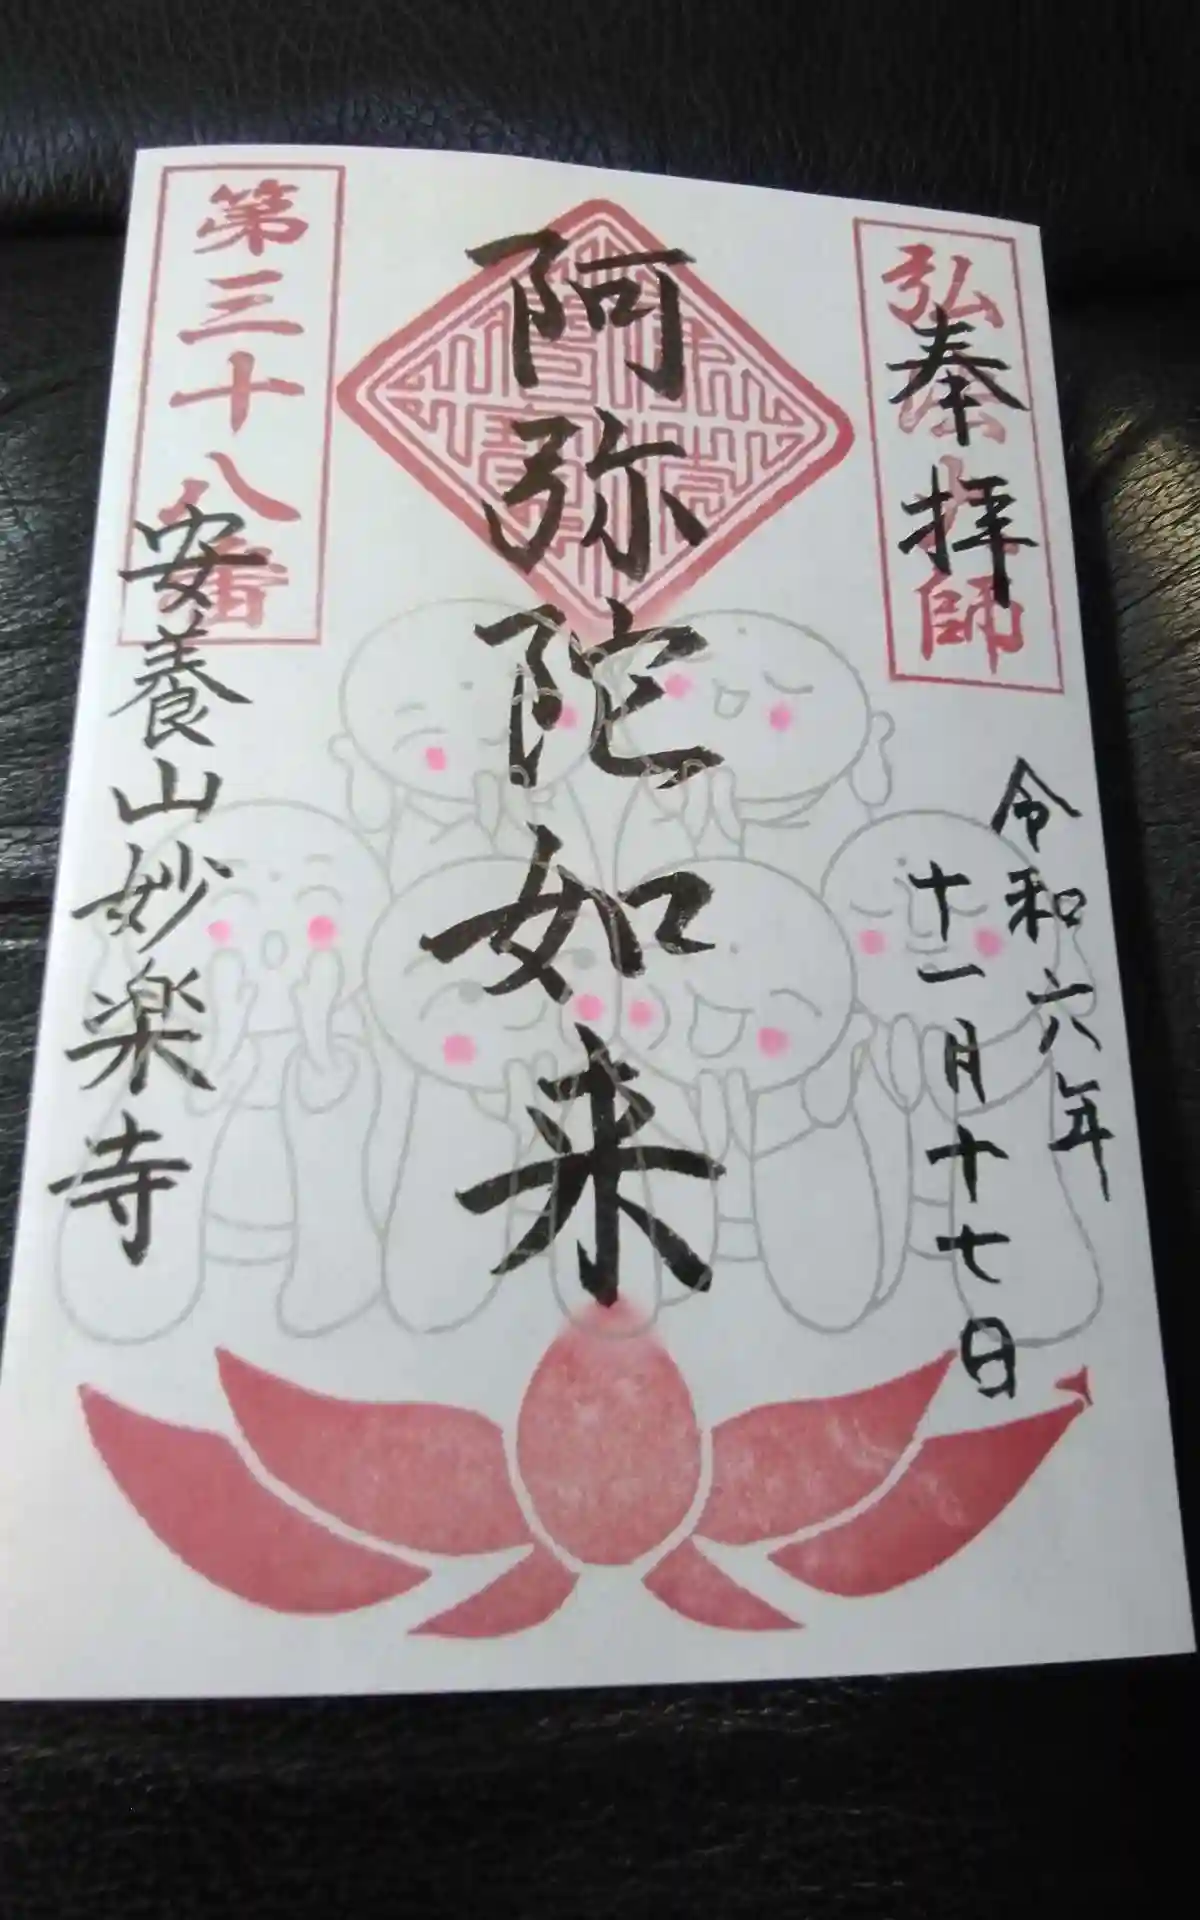 弘法大師
奉拝
令和六年
十一月十七日
阿弥陀如来
第三十八番
安養山妙楽寺